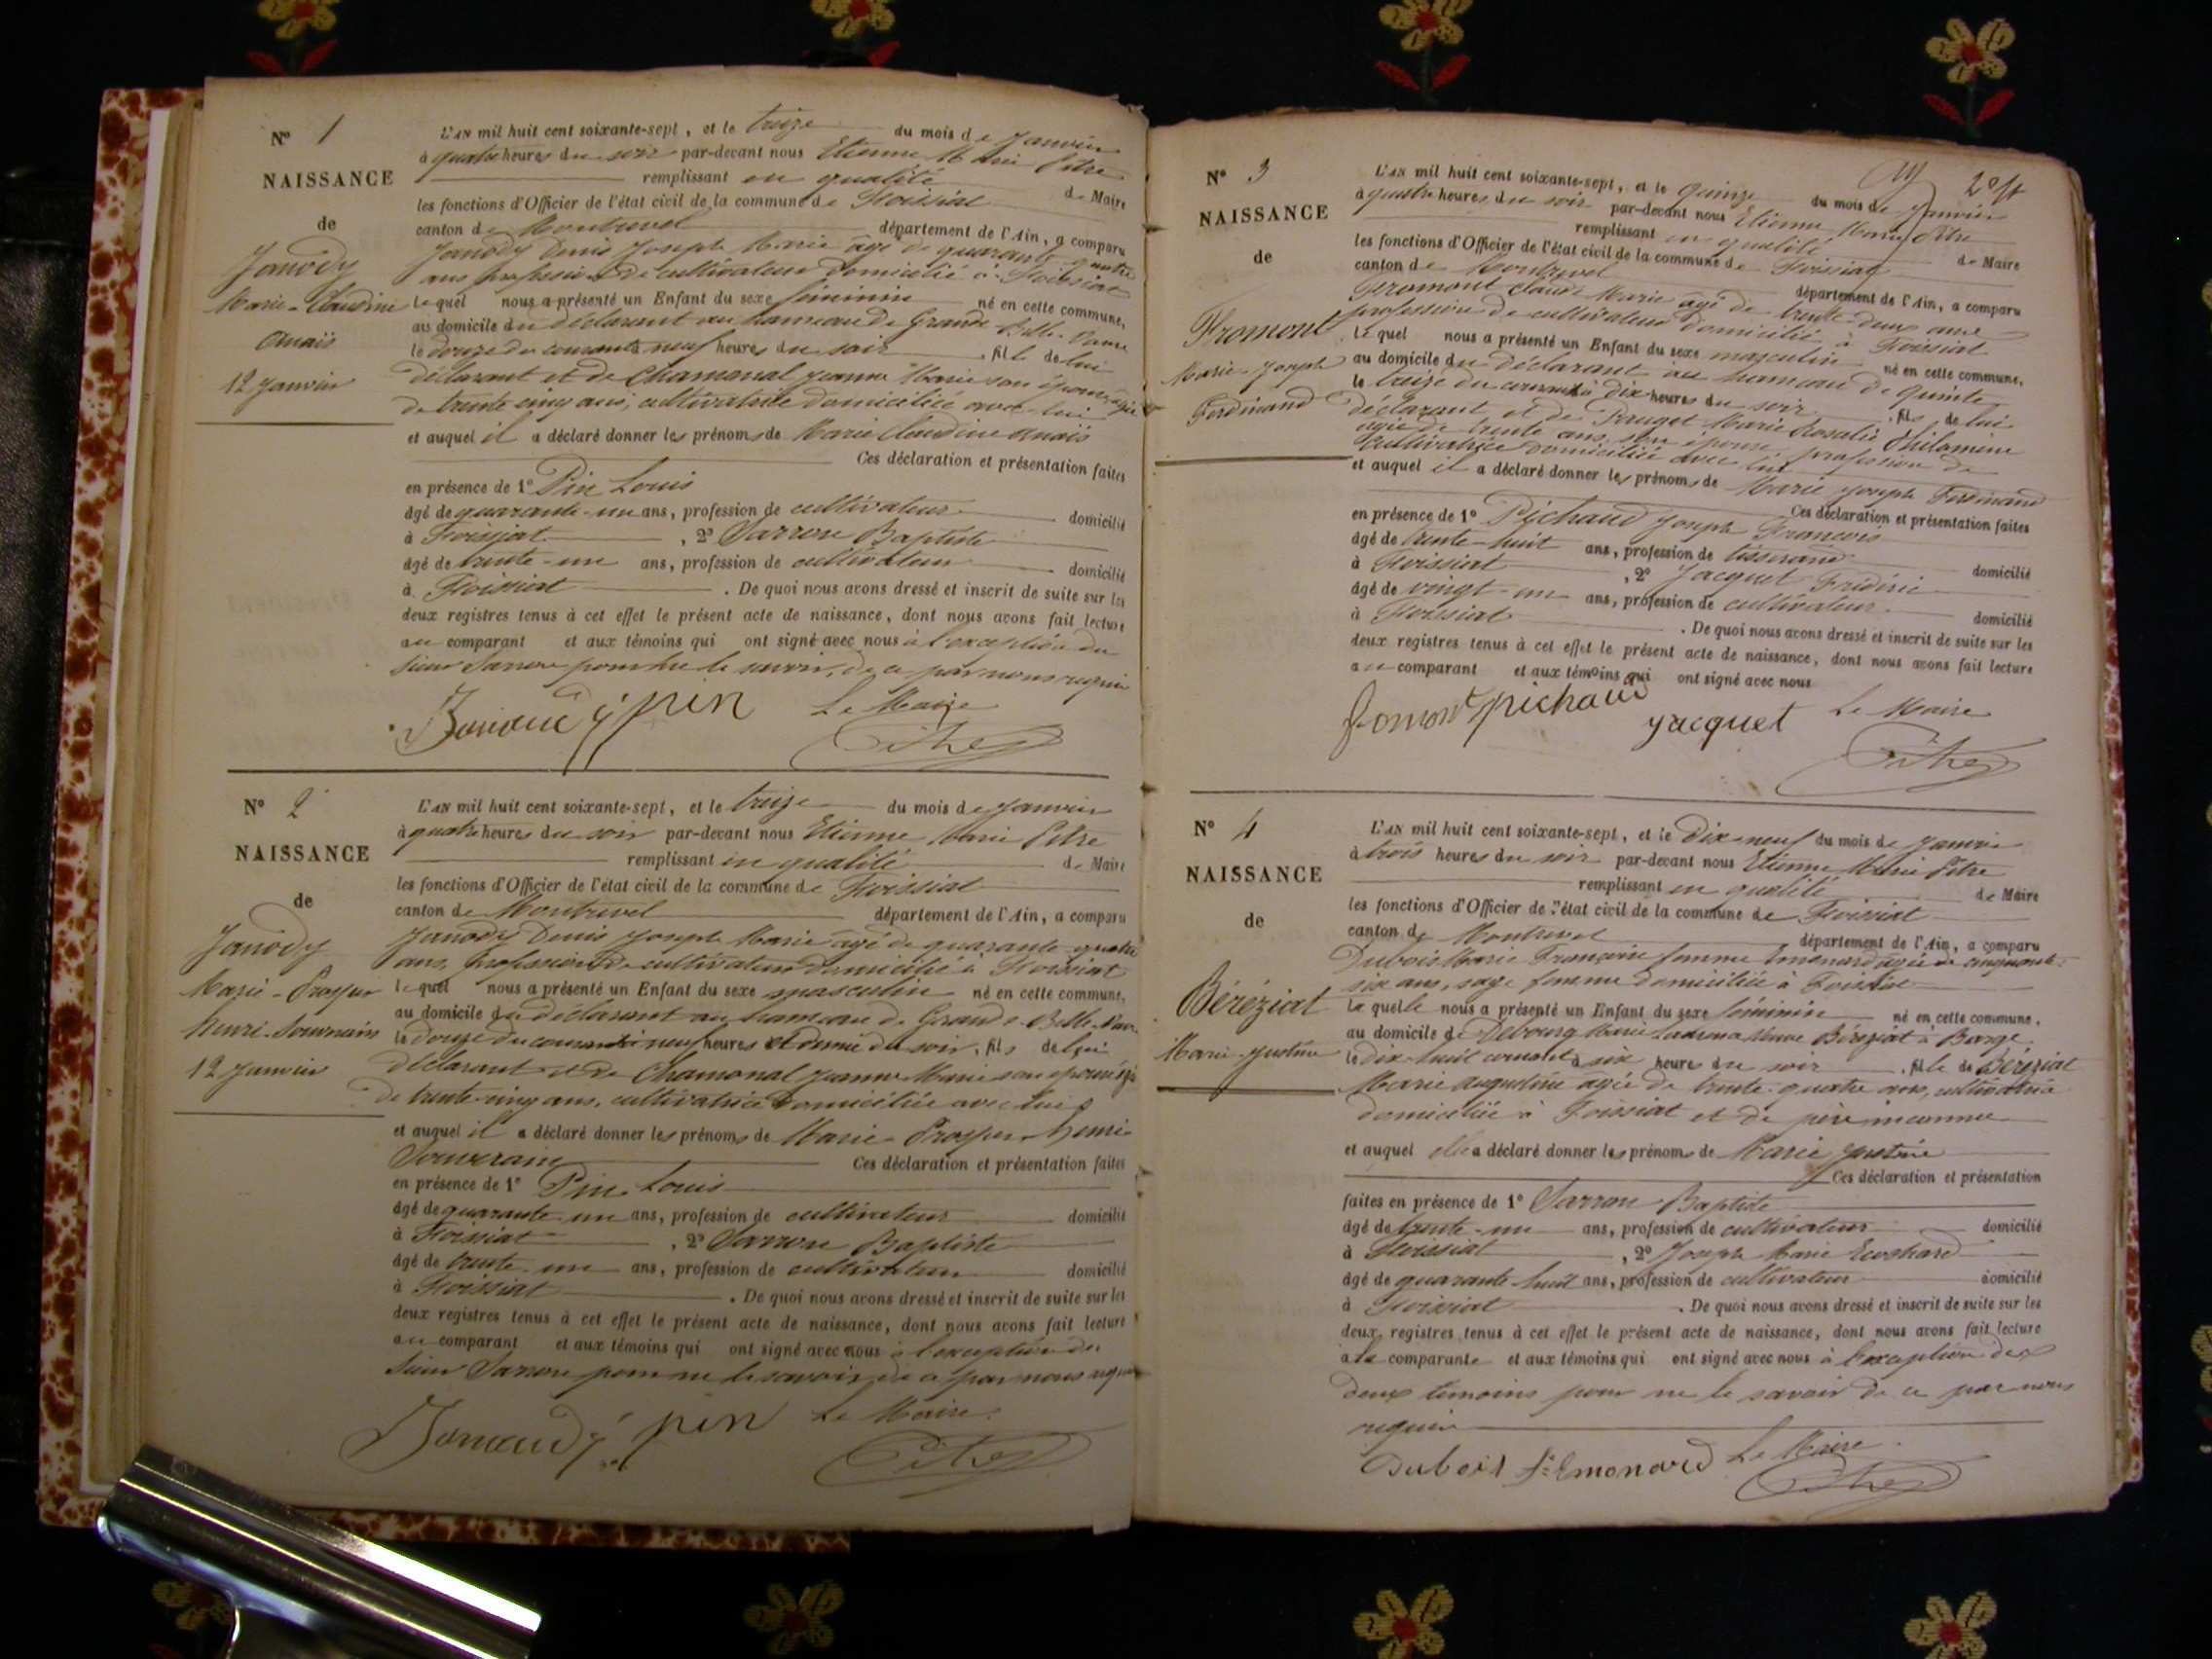 N° 1
NAISSANCE
de
Janody
Marie-Claudine
Anaïs
12 Janvier
L'AN mil huit cent soixante-sept, et le treize du mois de Janvier
à quatre heures du soir par-devant nous Etienne Marie Pitre
remplissant en qualité de Maire
les fonctions d'Officier de l'état civil de la commune de Foissiat
canton de Montrevel département de l'Ain, a comparu
Janody Denis Joseph Marie âgé de quarante-quatre
ans, profession de cultivateur domicilié à Foissiat
lequel nous a présenté un Enfant du sexe féminin né en cette commune,
au domicile du déclarant au hameau de Grande
le douze du courant à neuf heures du soir, fille de lui
déclarant et de Chamonal Jeanne Marie son épouse âgée
de trente cinq ans, cultivatrice domiciliée avec lui
et auquel il a déclaré donner les prénoms de Marie Claudine Anaïs
Ces déclaration et présentation faites
en présence de 1° Pin Louis
âgé de quarante-un ans, profession de cultivateur domicilié
à Foissiat, 2° Sarron Baptiste
âgé de trente-un ans, profession de cultivateur domicilié
à Foissiat. De quoi nous avons dressé et inscrit de suite sur les
deux registres tenus à cet effet le présent acte de naissance, dont nous avons fait lecture
au comparant et aux témoins qui ont signé avec nous à l'exception du
sieur Sarron pour ne le savoir, de ce par nous requis
pin Le Maire
N° 2
NAISSANCE
de
Janody
Marie-Prosper
Henri-Souverain
12 Janvier
L'AN mil huit cent soixante-sept, et le treize du mois de Janvier
à quatre heures du soir par-devant nous Etienne Marie Pitre
remplissant en qualité de Maire
les fonctions d'Officier de l'état civil de la commune de Foissiat
canton de Montrevel département de l'Ain, a comparu
Janody Denis Joseph Marie âgé de quarante-quatre
ans, profession de cultivateur domicilié à Foissiat
lequel nous a présenté un Enfant du sexe masculin né en cette commune,
au domicile du déclarant au hameau de Grande
le douze du courant à neuf heures et demie du soir, fils de lui
déclarant et de Chamonal Jeanne Marie son épouse âgée
de trente-cinq ans, cultivatrice domiciliée avec lui
et auquel il a déclaré donner les prénoms de Marie Prosper Henri
Souverain Ces déclaration et présentation faites
en présence de 1° Pin Louis
âgé de quarante un ans, profession de cultivateur domicilié
à Foissiat, 2° Sarron Baptiste
âgé de trente-un ans, profession de cultivateur domicilié
à Foissiat. De quoi nous avons dressé et inscrit de suite sur les
deux registres tenus à cet effet le présent acte de naissance, dont nous avons fait lecture
au comparant et aux témoins qui ont signé avec nous à l'exception du
sieur Sarron pour ne le savoir, de ce par nous requis
pin Le Maire
N° 3
NAISSANCE
de
Fromont
Marie-Joseph
Ferdinand
L'AN mil huit cent soixante-sept, et le quinze du mois de Janvier
à quatre heures du soir par-devant nous Etienne Marie Pitre
remplissant en qualité de Maire
les fonctions d'Officier de l'état civil de la commune de Foissiat
canton de Montrevel département de l'Ain, a comparu
Fromont Claude Marie âgé de trente-deux ans
profession de cultivateur domicilié à Foissiat
lequel nous a présenté un Enfant du sexe masculin né en cette commune,
au domicile du déclarant au hameau de Quinte
le treize du courant à dix heures du soir, fils de lui
déclarant et de Pauget Marie Rosalie Philomène
âgée de trente ans, son épouse, profession de
cultivatrice domiciliée avec lui
et auquel il a déclaré donner les prénoms de Marie Joseph Ferdinand
Ces déclaration et présentation faites
en présence de 1° Pichaud Joseph François
âgé de trente-huit ans, profession de tisserand domicilié
à Foissiat, 2° Jacquet Frédéric
âgé de vingt-un ans, profession de cultivateur domicilié
à Foissiat. De quoi nous avons dressé et inscrit de suite sur les
deux registres tenus à cet effet le présent acte de naissance, dont nous avons fait lecture
au comparant et aux témoins qui ont signé avec nous
fromont pichaud
jacquet Le Maire
N° 4
NAISSANCE
de
Béréziat
Marie-Justine
L'AN mil huit cent soixante-sept, et le dix-neuf du mois de Janvier
à trois heures du soir par-devant nous Etienne Marie Pitre
remplissant en qualité de Maire
les fonctions d'Officier de l'état civil de la commune de Foissiat
canton de Montrevel département de l'Ain, a comparu
Dubois Marie Françoise femme Emonard âgée de cinquante-
six ans, sage femme domiciliée à Foissiat
laquelle nous a présenté un Enfant du sexe féminin né en cette commune,
au domicile de Debourg Marie veuve Béréziat à
le dix-huit courant à six heures du soir, fille de Béréziat
Marie Augustine âgée de trente-quatre ans, cultivatrice
domiciliée à Foissiat et de père inconnu
et auquel elle a déclaré donner les prénoms de Marie Justine
Ces déclaration et présentation
faites en présence de 1° Sarron Baptiste
âgé de trente-un ans, profession de cultivateur domicilié
à Foissiat, 2° Joseph Marie
âgé de quarante-huit ans, profession de cultivateur domicilié
à Foissiat. De quoi nous avons dressé et inscrit de suite sur les
deux registres tenus à cet effet le présent acte de naissance, dont nous avons fait lecture
à la comparante et aux témoins qui ont signé avec nous à l'exception des
deux témoins pour ne le savoir de ce par nous
requis
Dubois fe Emonard Le Maire